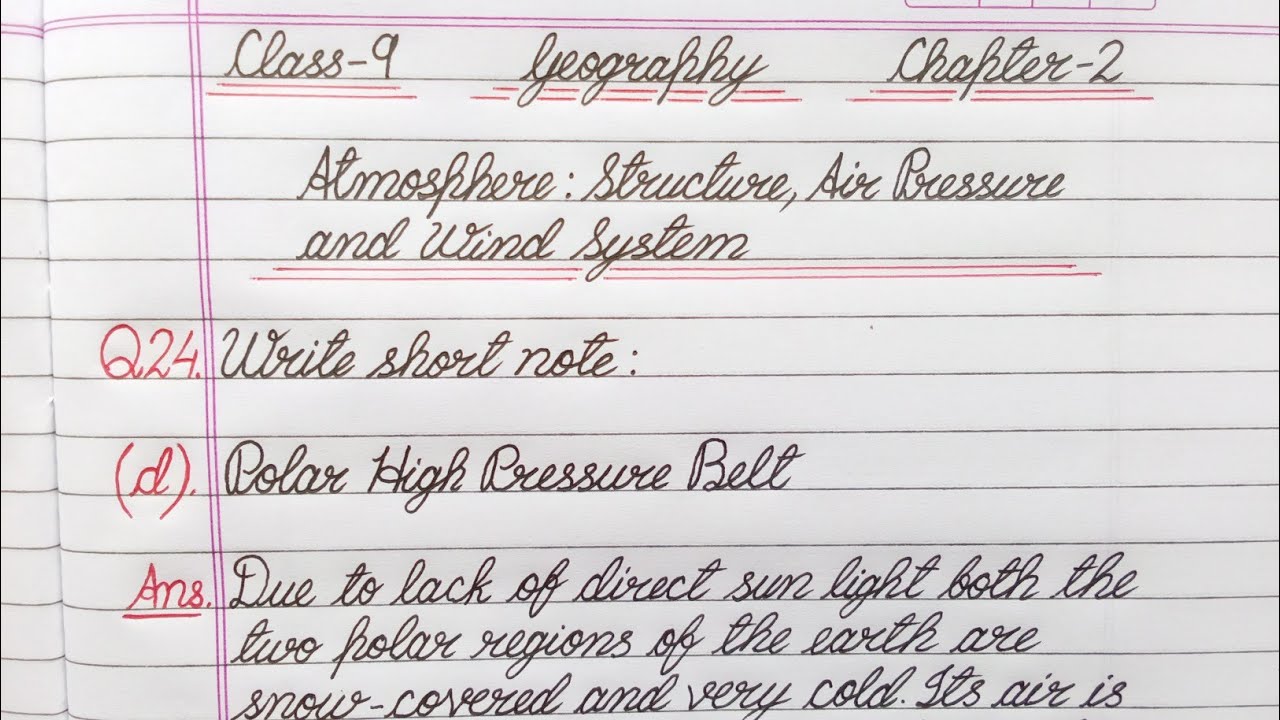 Class-9 Geography Chapter-2
Atmosphere: Structure, Air Pressure
and Wind System
Q24. Write short note:
(d). Polar High Pressure Belt
Ans. Due to lack of direct sun light both the
two polar regions of the earth are
snow-covered and very cold. Its air is